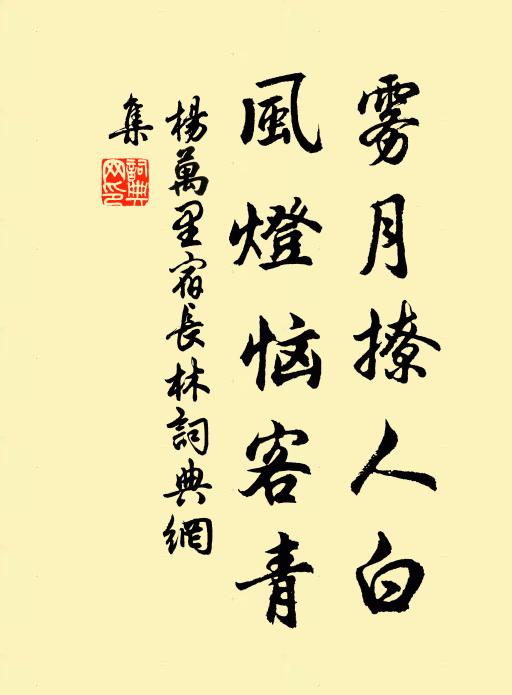 雾月撩人白
風燈恼客青
楊萬里宿長林詞典網
集
詞典
网印